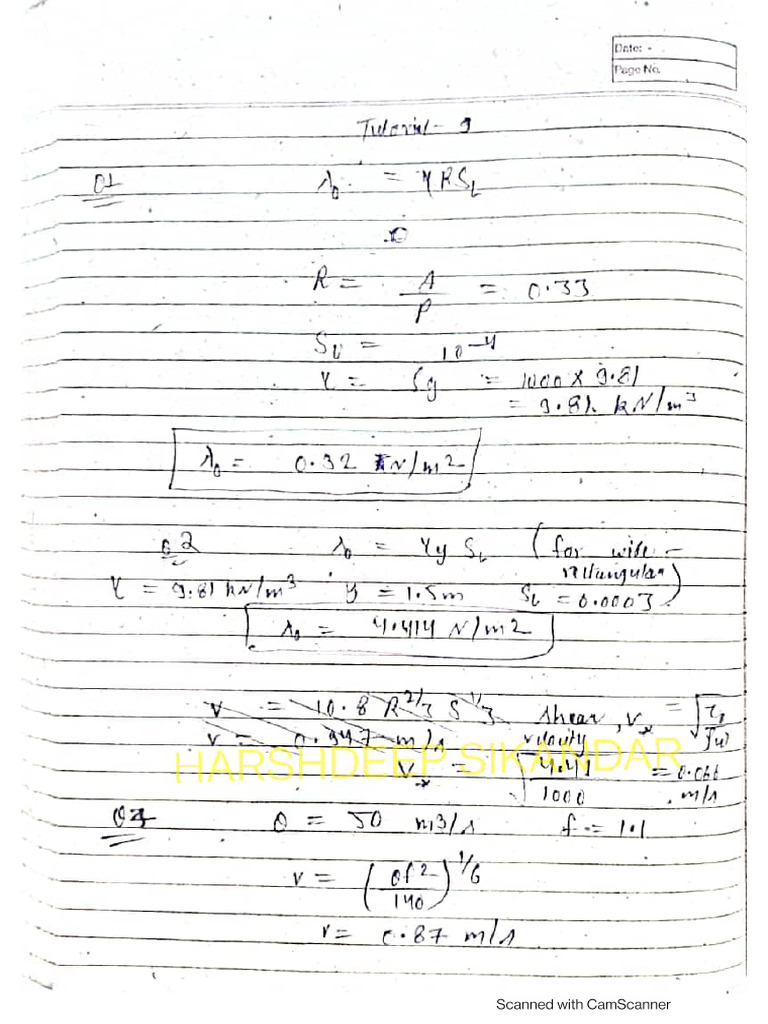 Date: -
Page No.
Tutorial - 9
Q1 λ₀ = γRS_L
R = A/P = 0.33
S_L = 10⁻⁴
γ = ρg = 1000 × 9.81
= 9.81 kN/m³
λ₀ = 0.32 N/m2
Q2 λ₀ = γy S_L (for wide
rectangular)
γ = 9.81 kN/m³ y = 1.5m S_L = 0.0003
λ₀ = 4.414 N/m2
v = 10.8 R^2/3 S^1/3 shear , V* = √(τ₀/ρw)
v = 0.947 m/s velocity
HARSHDEEP SIKANDAR
V* = √(4.41/1000) = 0.066
m/s
Q = 50 m3/s f = 1.1
v = (Qf²/140)^1/6
v = 0.87 m/s
Scanned with CamScanner